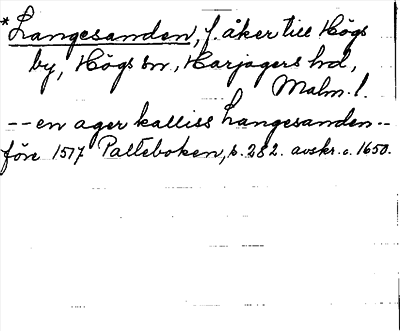 *Langesanden, f. åker till Högs
by, Högs sn., Harjagers hd,
Malm. l.
-- en ager kalliss Langesanden --
före 1517 Palteboken, s. 282. avskr. c. 1650.